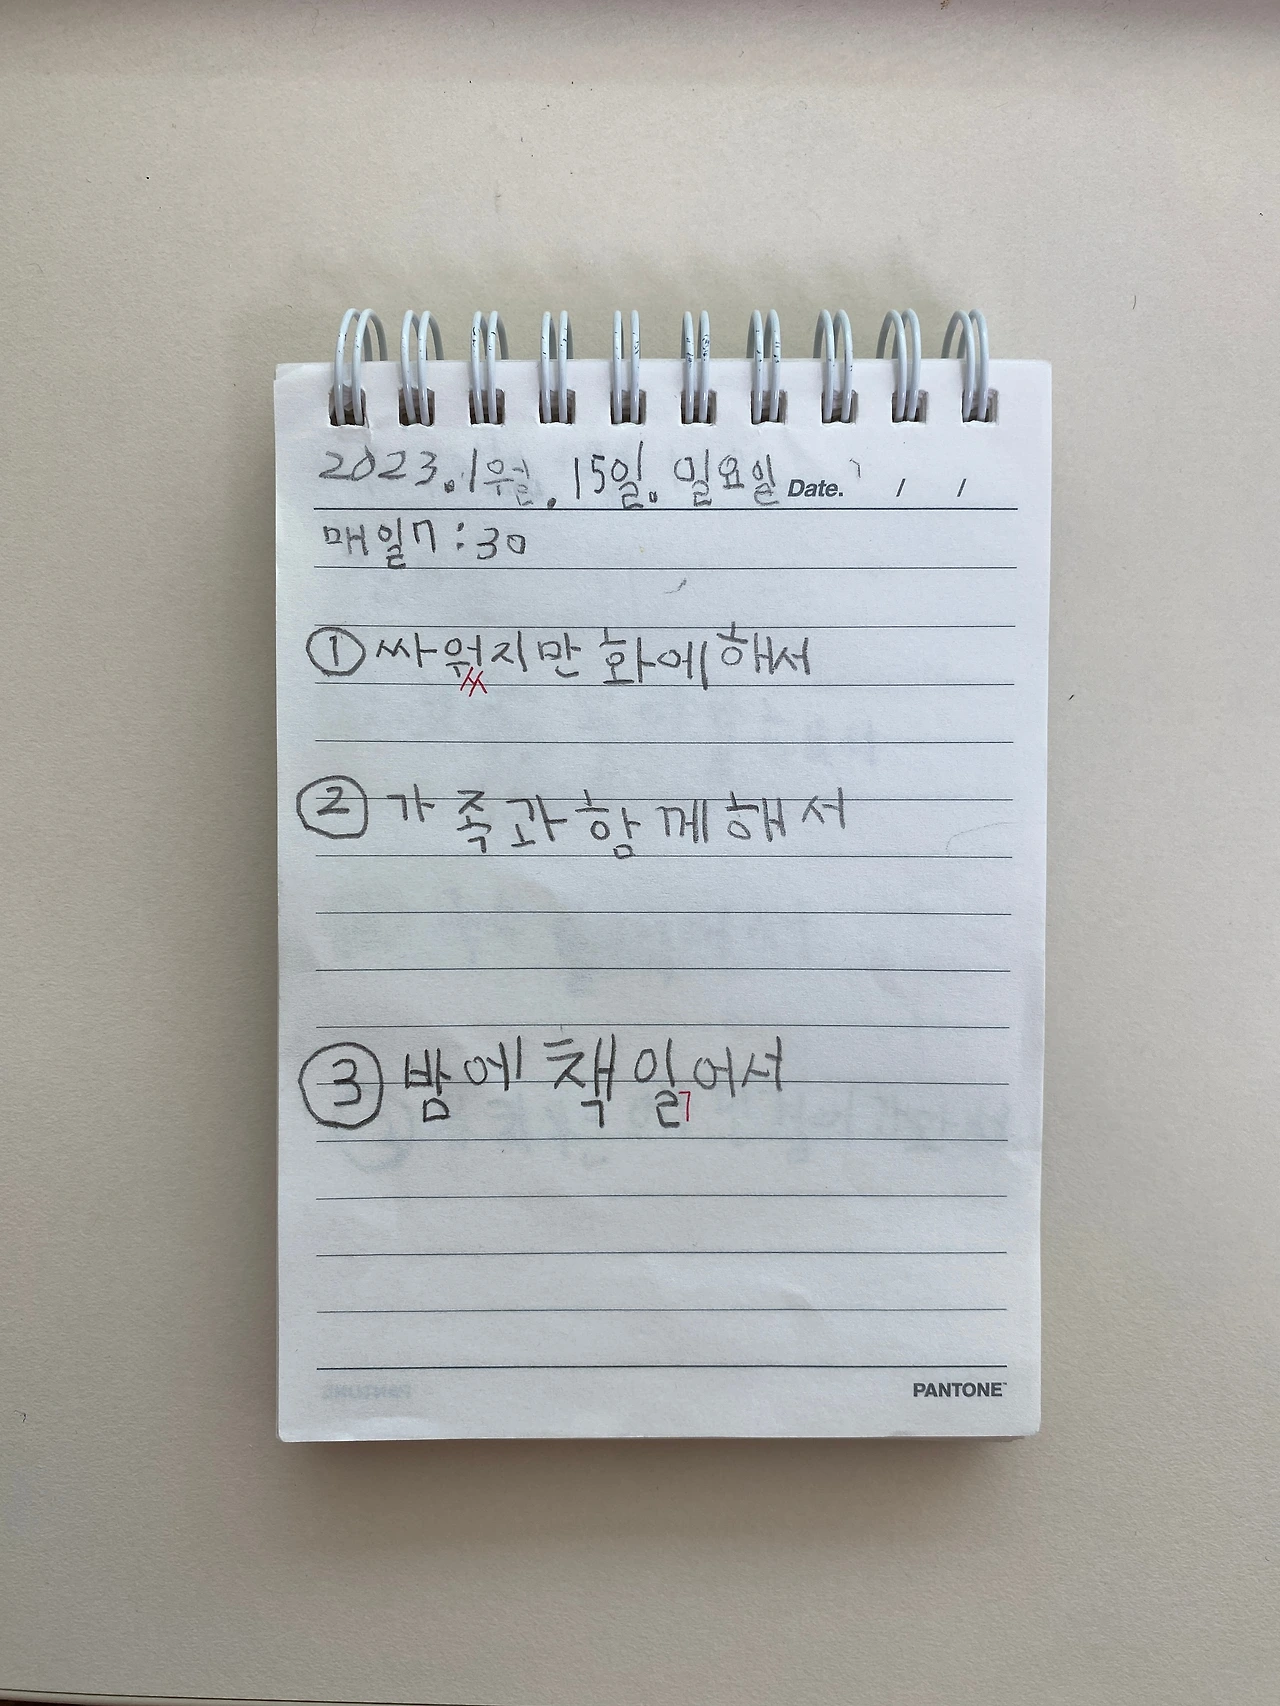 2023.1월.15일.일요일 Date. / /
매일7:30
① 싸워지만 화에해서
ㅆ
② 가족과함께해서
③ 밤에 책 일어서
ㄱ
PANTONE